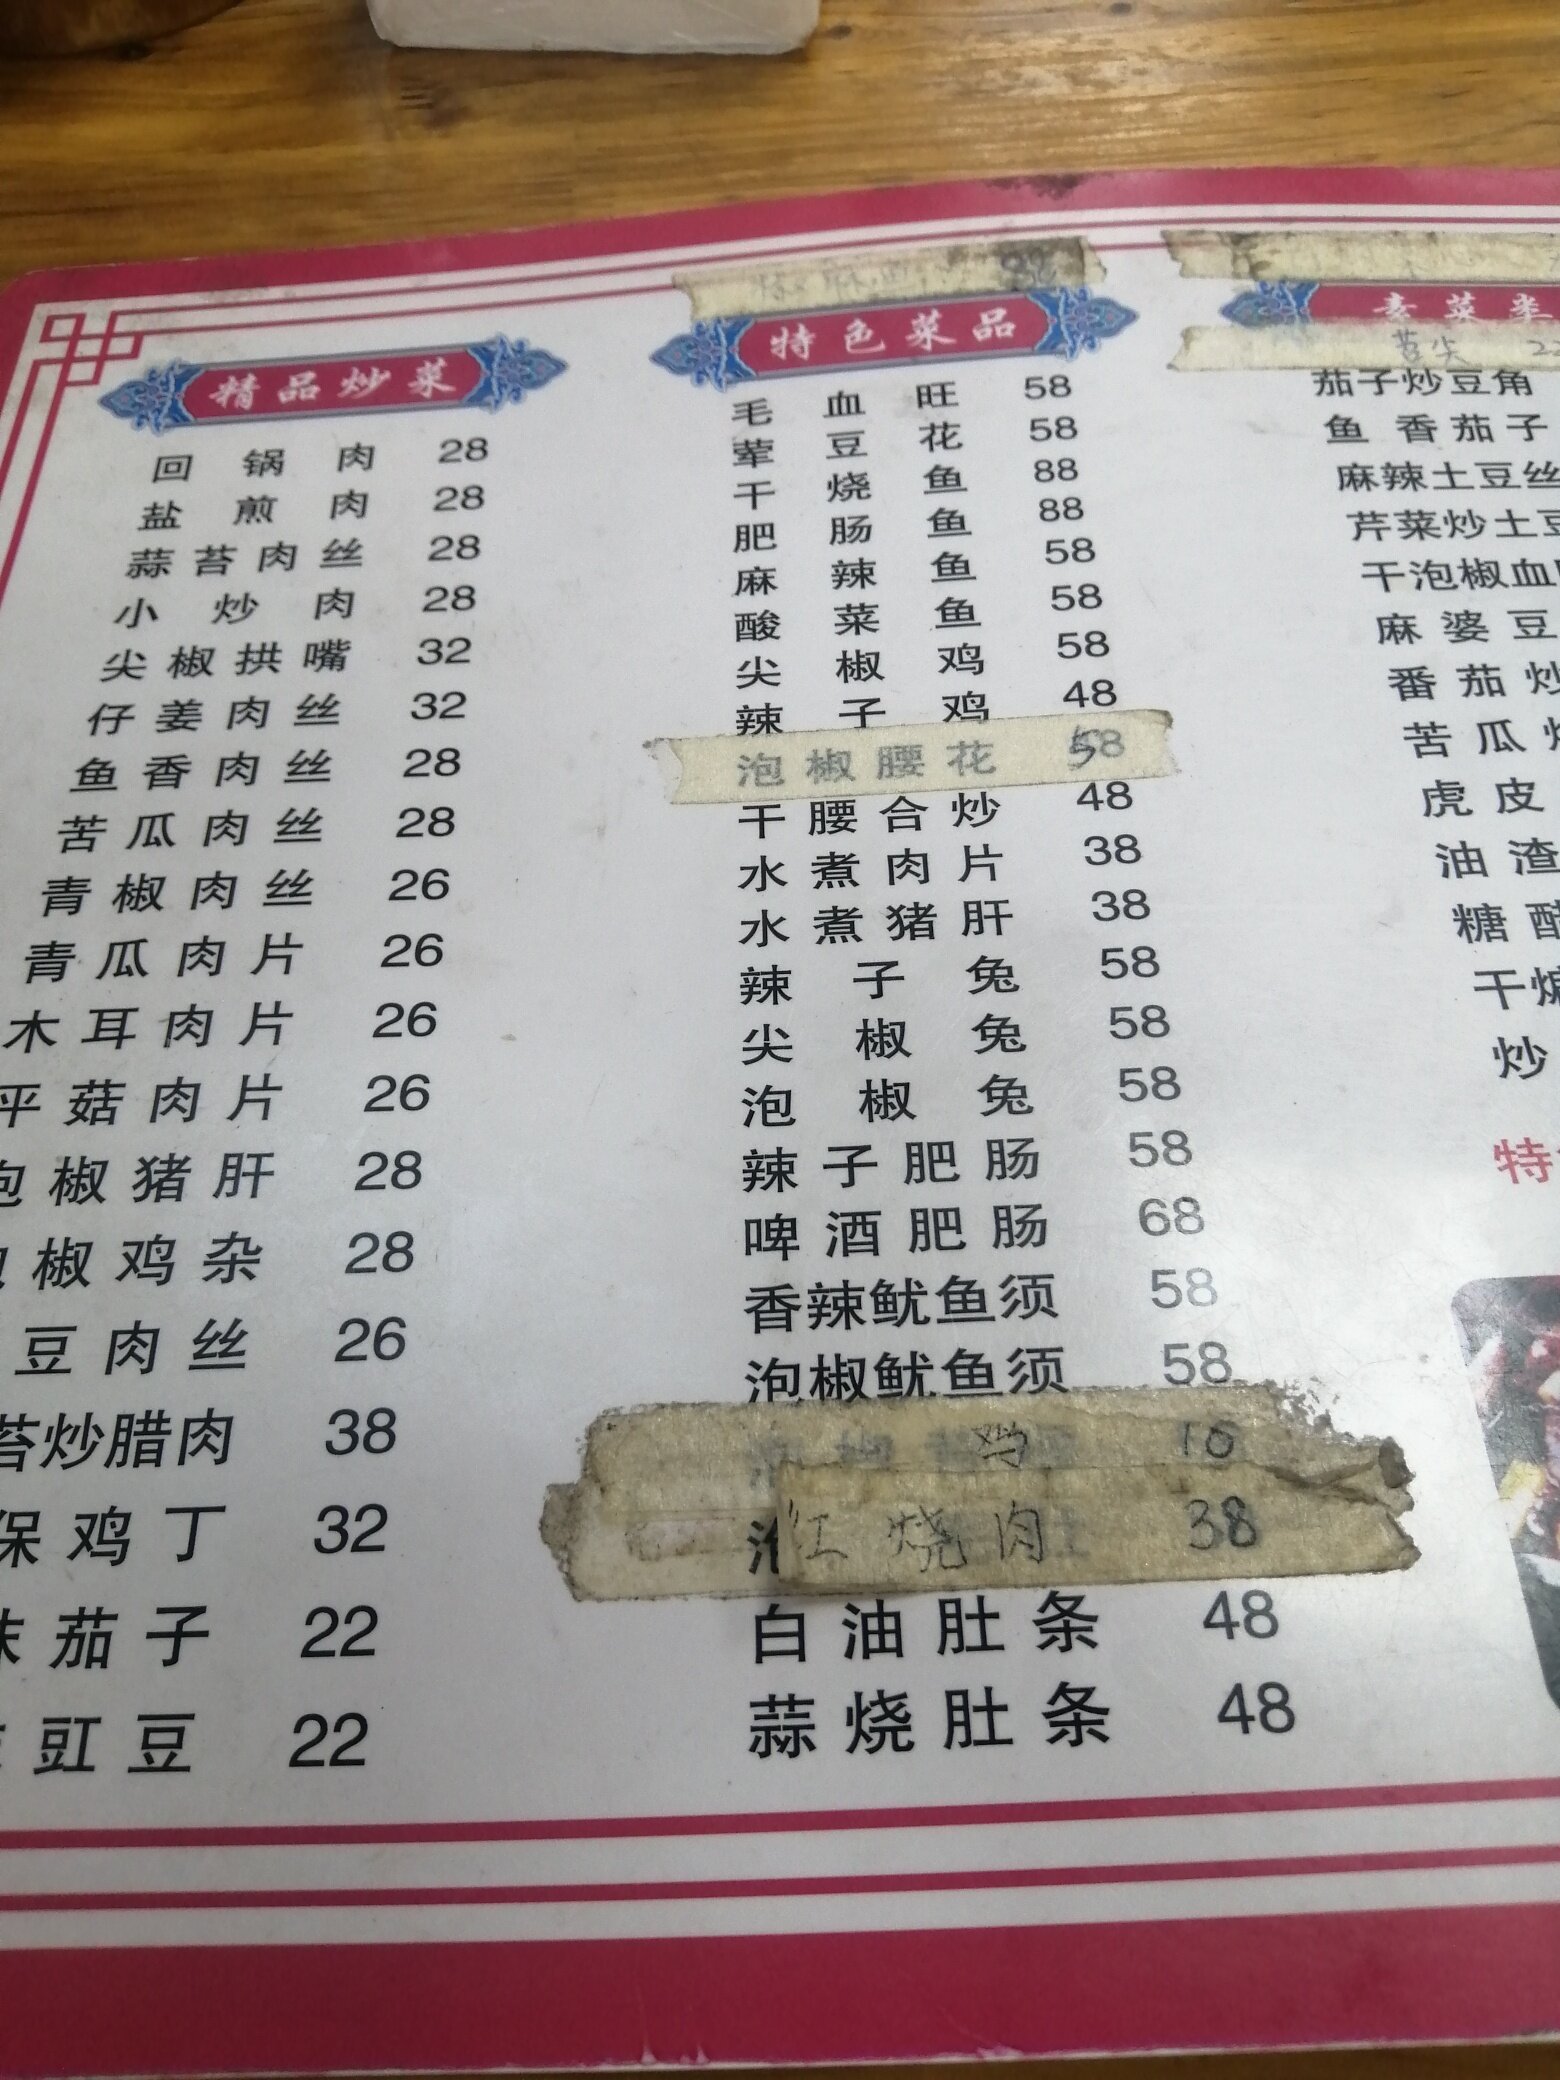 精品炒菜
回锅肉 28
盐煎肉 28
蒜苔肉丝 28
小炒肉 28
尖椒拱嘴 32
仔姜肉丝 32
鱼香肉丝 28
苦瓜肉丝 28
青椒肉丝 26
青瓜肉片 26
木耳肉片 26
平菇肉片 26
泡椒猪肝 28
椒鸡杂 28
豆肉丝 26
苔炒腊肉 38
保鸡丁 32
茄子 22
豇豆 22
特色菜品
毛血旺 58
荤豆花 58
干烧鱼 88
肥肠鱼 88
麻辣鱼 58
酸菜鱼 58
尖椒鸡 58
辣子鸡 48
泡椒腰花 58
干腰合炒 48
水煮肉片 38
水煮猪肝 38
辣子兔 58
尖椒兔 58
泡椒兔 58
辣子肥肠 58
啤酒肥肠 68
香辣鱿鱼须 58
泡椒鱿鱼须 58
鸡 10
红烧肉 38
白油肚条 48
蒜烧肚条 48
素菜类
苕尖 22
茄子炒豆角
鱼香茄子
麻辣土豆丝
芹菜炒土豆
干泡椒血
麻婆豆
番茄炒
苦瓜
虎皮
油渣
糖醋
干煸
炒
特